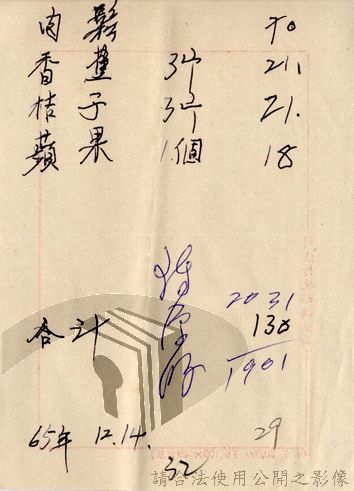 肉鬆 70
香蕉 3斤 21.
桔子 3斤 21.
蘋果 1個 18
2031
合計 130
1901
65年 12.14.
29
32
請合法使用公開之影像